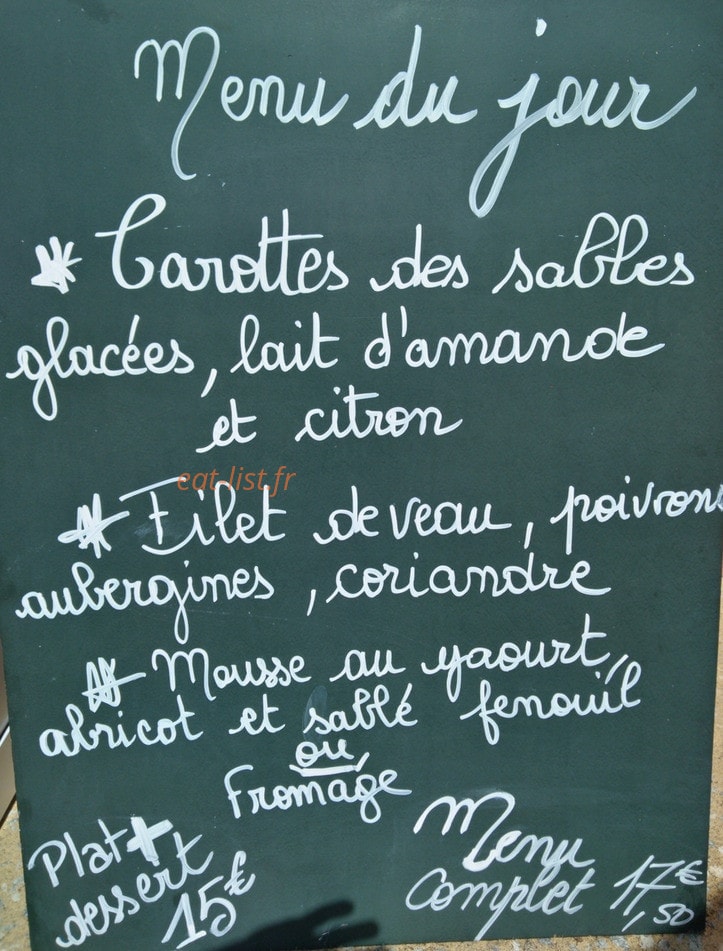 Menu du jour
* Carottes des sables
glacées, lait d'amande
et citron
eat-list.fr
* Filet de veau, poivrons
aubergines, coriandre
* Mousse au yaourt,
abricot et sablé fenouil
ou
Fromage
Plat +
dessert
15€
Menu
complet 17€,50